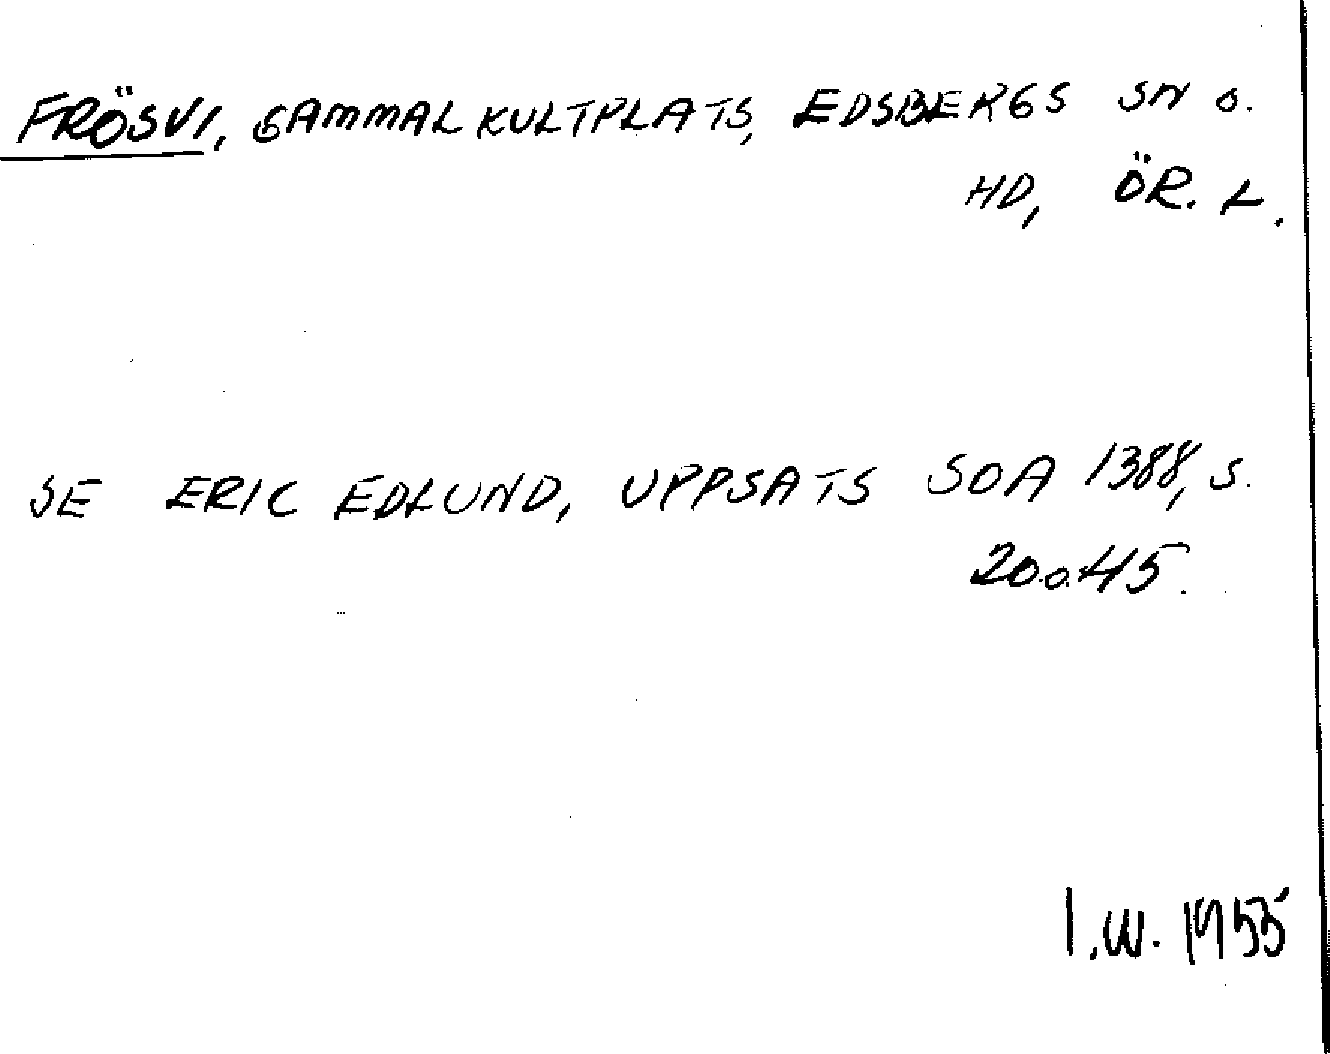 FRÖSVI, GAMMAL KULTPLATS, EDSBERGS SN O.
HD, ÖR. L.
SE ERIC EDLUND, UPPSATS SOA 1388, S.
20 o. 45.
I.W. 1955